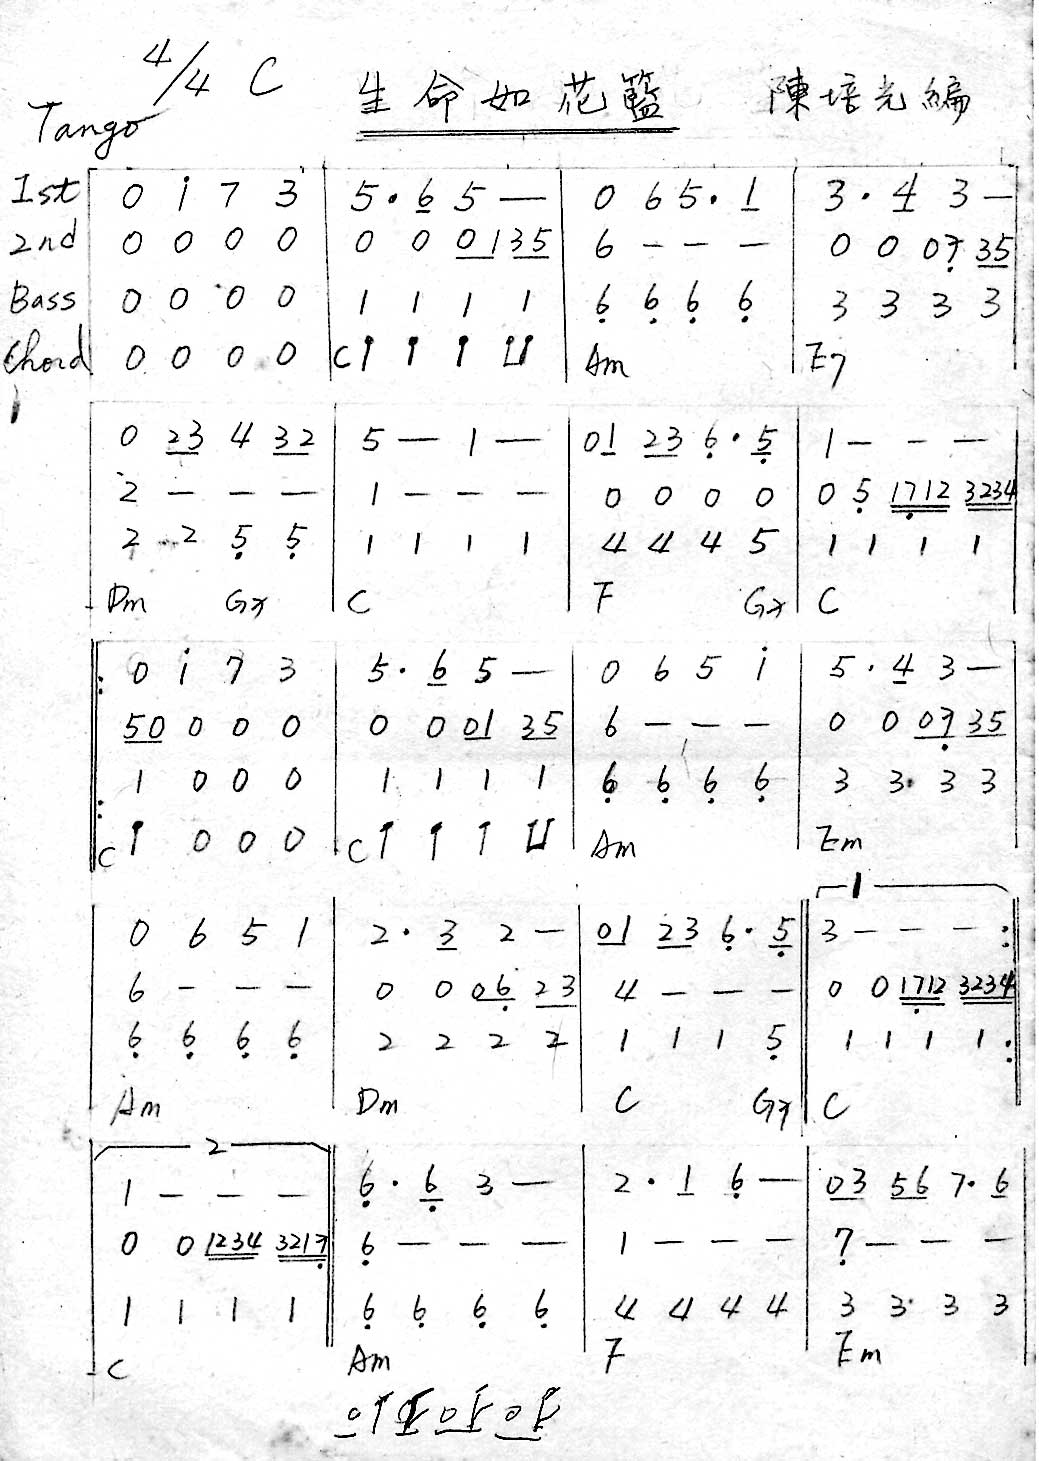 4/4 C 生命如花籃 陳培光編
Tango
1st 0 i 7 3 | 5 · 6 5 — | 0 6 5 · 1 | 3 · 4 3 —
2nd 0 0 0 0 | 0 0 01 35 | 6 — — — | 0 0 07 35
Bass 0 0 0 0 | 1 1 1 1 | 6 6 6 6 | 3 3 3 3
Chord 0 0 0 0 | C | Am | E7
0 23 4 32 | 5 — 1 — | 01 23 6 · 5 | 1 — — —
2 — — — | 1 — — — | 0 0 0 0 | 0 5 1712 3234
2 2 5 5 | 1 1 1 1 | 4 4 4 5 | 1 1 1 1
Dm G7 | C | F G7 | C
0 i 7 3 | 5 · 6 5 — | 0 6 5 i | 5 · 4 3 —
50 0 0 0 | 0 0 01 35 | 6 — — — | 0 0 07 35
1 0 0 0 | 1 1 1 1 | 6 6 6 6 | 3 3 3 3
C 0 0 0 | C | Am | Em
1
0 6 5 1 | 2 · 3 2 — | 01 23 6 · 5 | 3 — — — :
6 — — — | 0 0 06 23 | 4 — — — | 0 0 1712 3234
6 6 6 6 | 2 2 2 2 | 1 1 1 5 | 1 1 1 1 :
Am | Dm | C G7 | C
2
1 — — — | 6 · 6 3 — | 2 · 1 6 — | 03 56 7 · 6
0 0 1234 3217 | 6 — — — | 1 — — — | 7 — — —
1 1 1 1 | 6 6 6 6 | 4 4 4 4 | 3 3 3 3
C | Am | F | Em